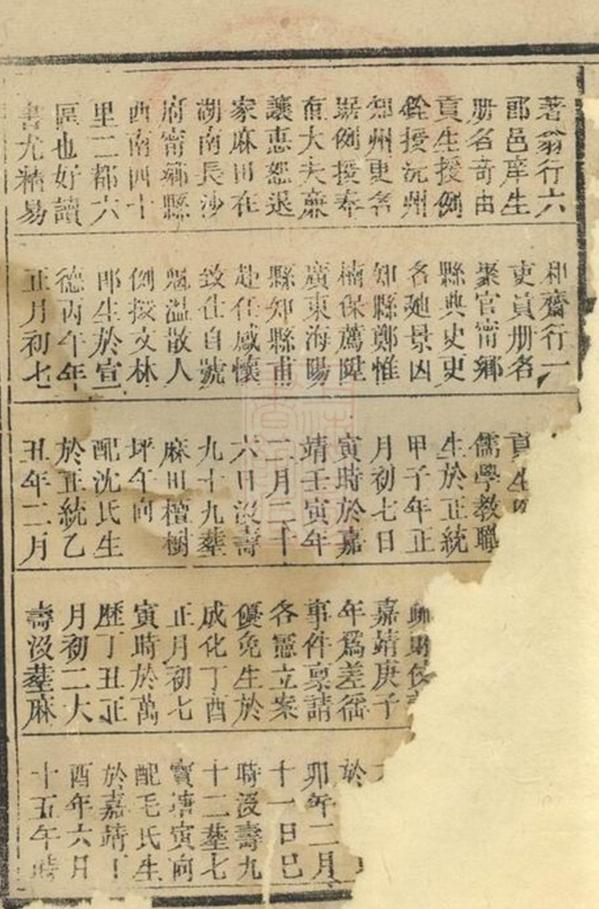 著翁行六
郎邑庠生
册名奇由
貢生授例
銓授沅州
知州更名
琚例授奉
直大夫廉
讓惠恕退
家麻田在
湖南長沙
府甯鄉縣
西南四十
里二都六
區也好讀
書尤精易
和齋行一
吏員册名
聚官甯鄉
縣典史更
名廸景因
知縣鄭惟
楠保薦陞
廣東海陽
縣知縣甫
赴任感懷
致仕自號
温散人
例授文林
郎生於宣
德丙午年
正月初七
貢生
儒學教職
生於正統
甲子年正
月初七日
寅時於嘉
靖壬寅年
二月二十
六日沒壽
九十九塟
麻田檀樹
坪午向
配沈氏生
於正統乙
丑年二月
嘉靖庚子
年爲差徭
事件稟請
各憲立案
優免生於
成化丁酉
正月初七
寅時於萬
歷丁丑正
月初二大
壽沒塟麻
於
卯年二月
十一日巳
時沒壽九
十二塟七
寳塘寅向
配毛氏生
於嘉靖丁
酉年六月
十五午時